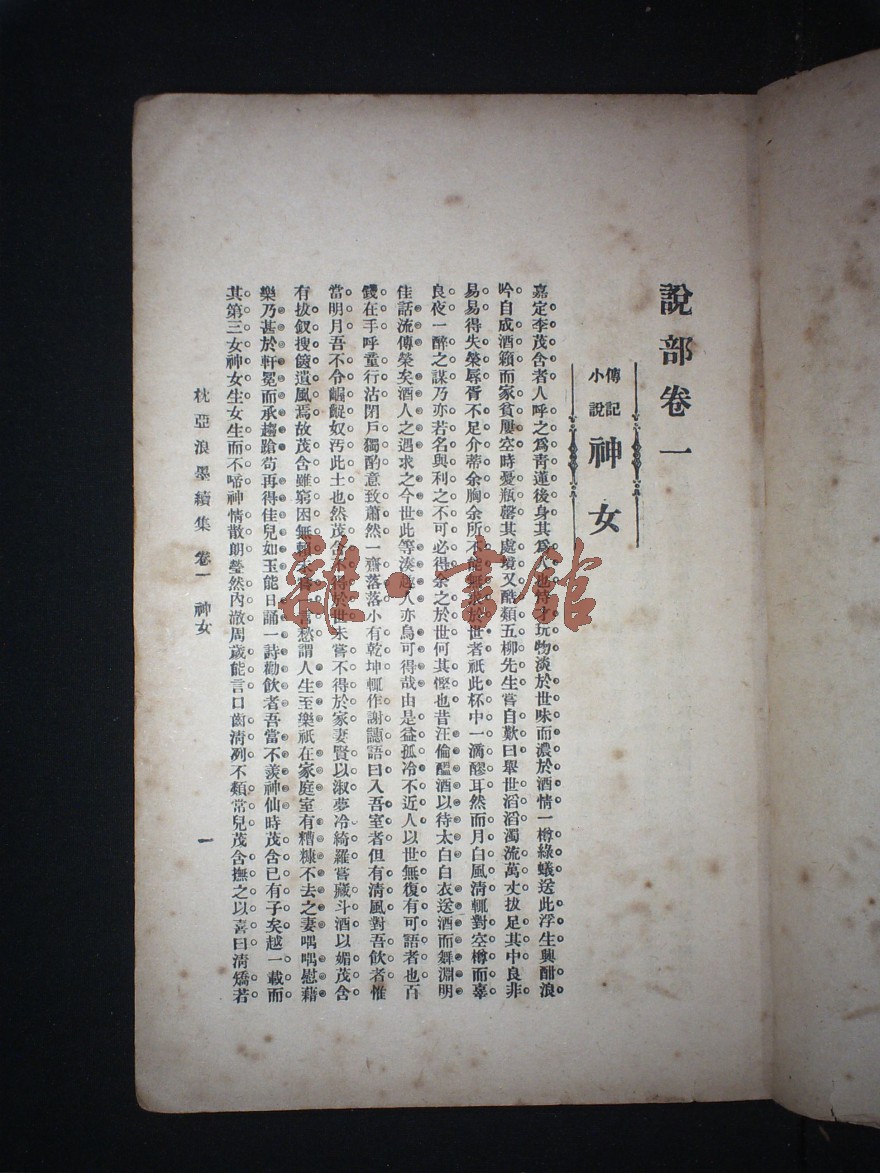 說部卷一
傳記
小說
神女
嘉定李茂含者人呼之爲靑蓮後身其爲人也恃才玩物淡於世味而濃於酒情一樽綠蟻送此浮生興酣浪
吟自成酒籟而家貧屢空時憂瓶罄其處境又酷類五柳先生嘗自歎曰舉世滔滔濁流萬丈拔足其中良非
易易得失榮辱胥不足介蒂余胸余所不能無求於世者祇此杯中一滴醪耳然而月白風淸輒對空樽而辜
良夜一醉之謀乃亦若名與利之不可必得余之於世何其慳也昔汪倫醞酒以待太白白衣送酒而舞淵明
佳話流傳榮矣酒人之遇求之今世此等湊趣人亦烏可得哉由是益孤冷不近人以世無復有可語者也百
錢在手呼童行沽閉戶獨酌意致蕭然一齋落落小有乾坤輒作謝譓語曰入吾室者但有淸風對吾飲者惟
當明月吾不令齷齪奴汚此土也然茂含不得於世未嘗不得於家妻賢以淑夢冷綺羅嘗藏斗酒以媚茂含
有拔釵搜篋遺風焉故茂含雖窮困無賴未嘗言愁謂人生至樂祇在家庭室有糟糠不去之妻喁喁慰藉
樂乃甚於軒冕而承趨蹌苟再得佳兒如玉能日誦一詩勸飲者吾當不羨神仙時茂含已有子矣越一載而
其第三女神女生女生而不啼神情散朗瑩然內澈周歲能言口齒淸冽不類常兒茂含撫之以喜曰淸矯若
枕亞浪墨續集 卷一 神女
一
雜·書館